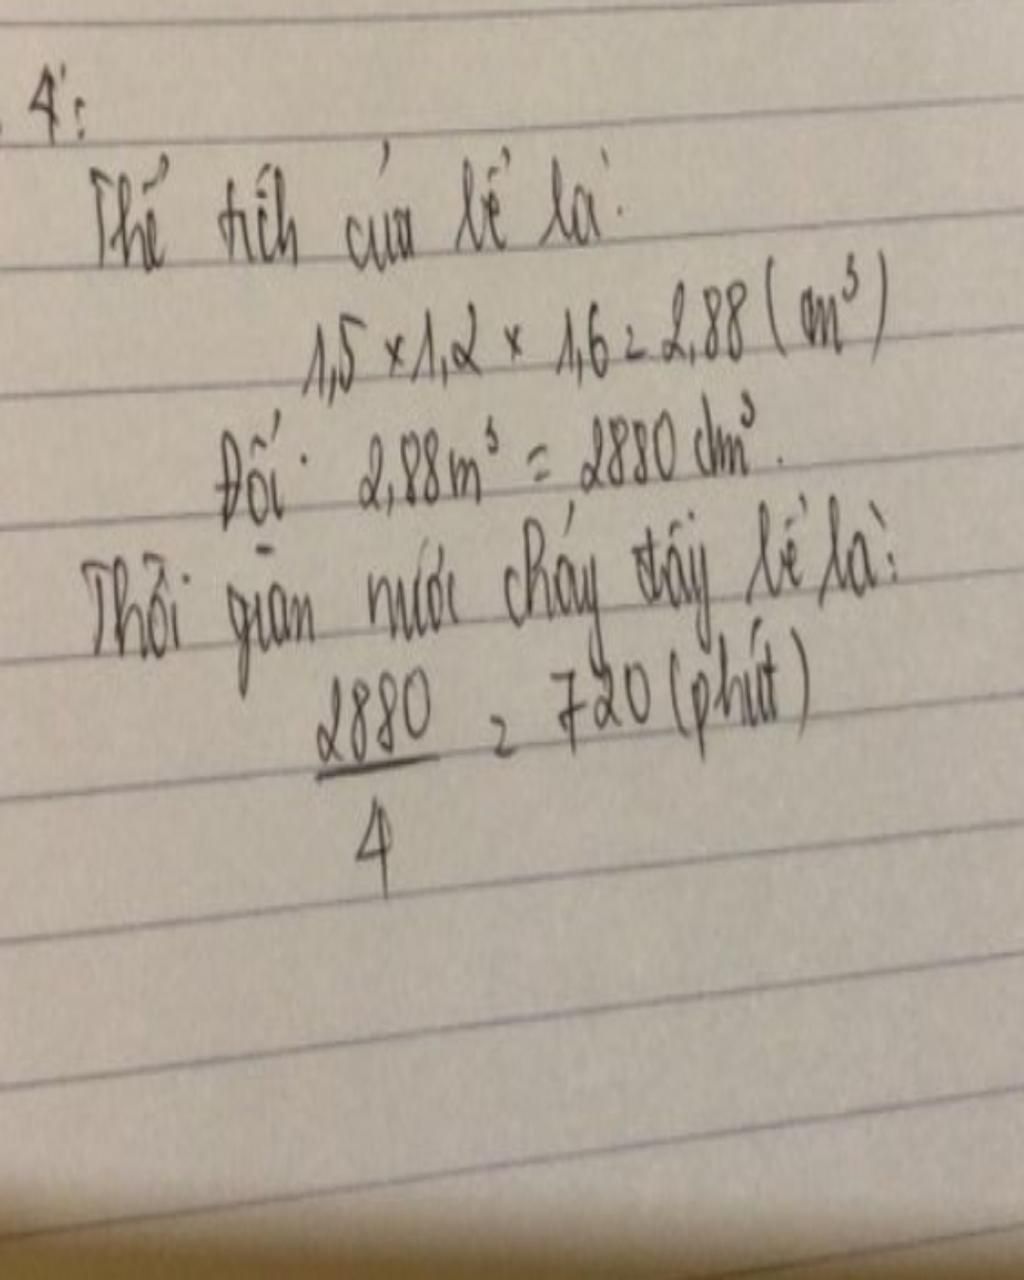 4:
Thể tích của bể là:
1,5 × 1,2 × 1,6 = 2,88 (m³)
Đổi: 2,88m³ = 2880 dm³.
Thời gian nước chảy đầy bể là:
2880/4 = 720 (phút)